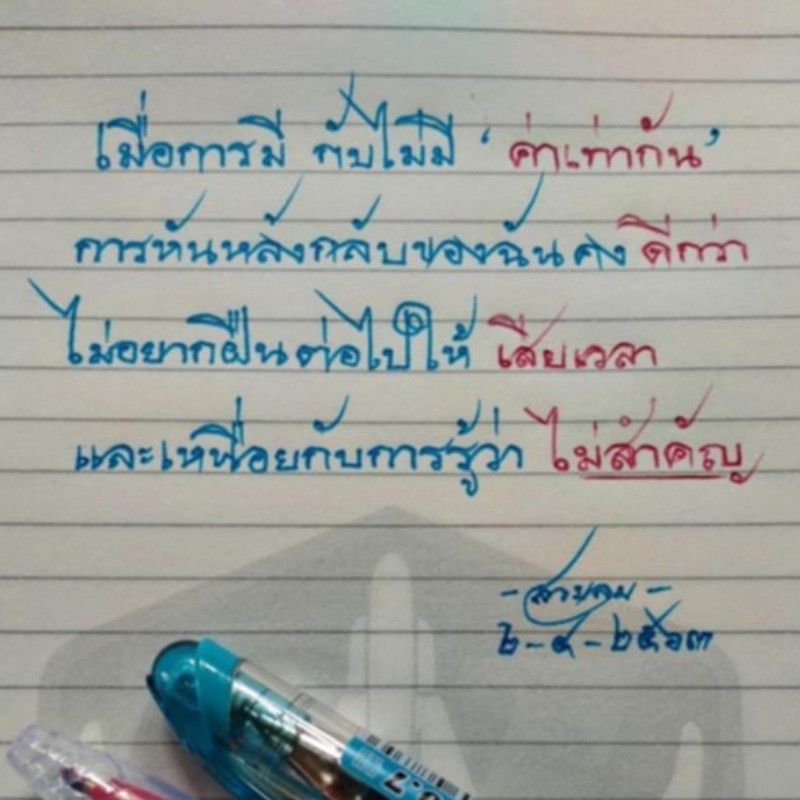 เมื่อการมี กับไม่มี ‘ค่าเท่ากัน’
การหันหลังกลับของฉันคง ดีกว่า
ไม่อยากฝืนต่อไปให้ เสียเวลา
และเหนื่อยกับการรู้ว่า ไม่สำคัญ
- สายลม -
๒-๔-๒๕๖๓
0.7